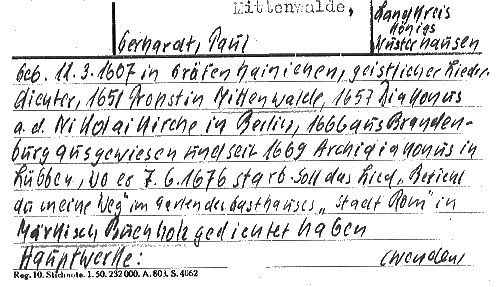 Mittenwalde,
Landkreis
Königs
Wusterhausen
Gerhardt, Paul
geb. 12.3.1607 in Gräfenhainichen, geistlicher Lieder-
dichter, 1651 Propst in Mittenwalde, 1657 Diakonus
a.d. Nikolaikirche in Berlin, 1666 aus Branden-
burg ausgewiesen und seit 1669 Archidiakonus in
Lübben, wo er 7.6.1676 starb. Soll das Lied „Befiehl
du meine Weg" im Garten des Gasthauses „Stadt Rom" in
Märkisch Buchholz gedichtet haben
Hauptwerke: (wenden)
Reg. 10. Stichnote. 1. 50. 232 000. A. 803. S. 4862